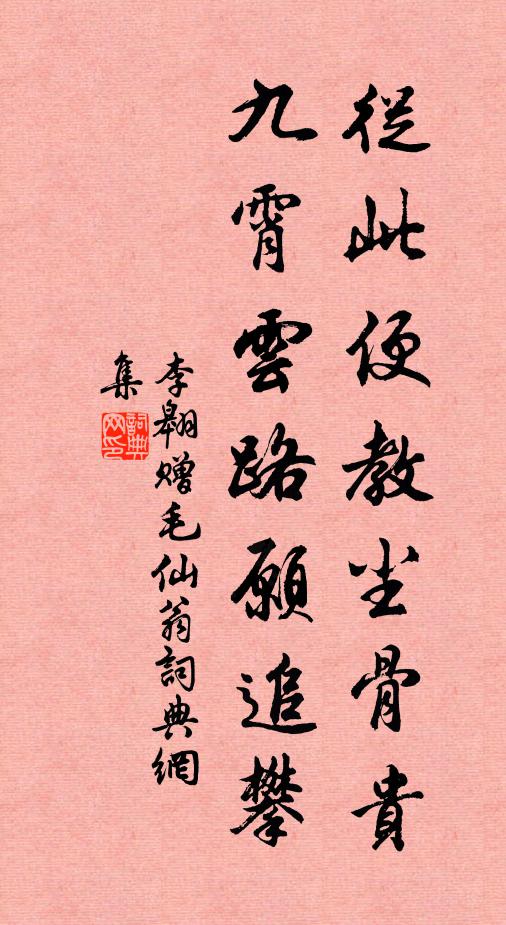 從此便教尘骨貴
九霄雲路願追攀
李翱赠毛仙翁詞典網
集
詞典网印